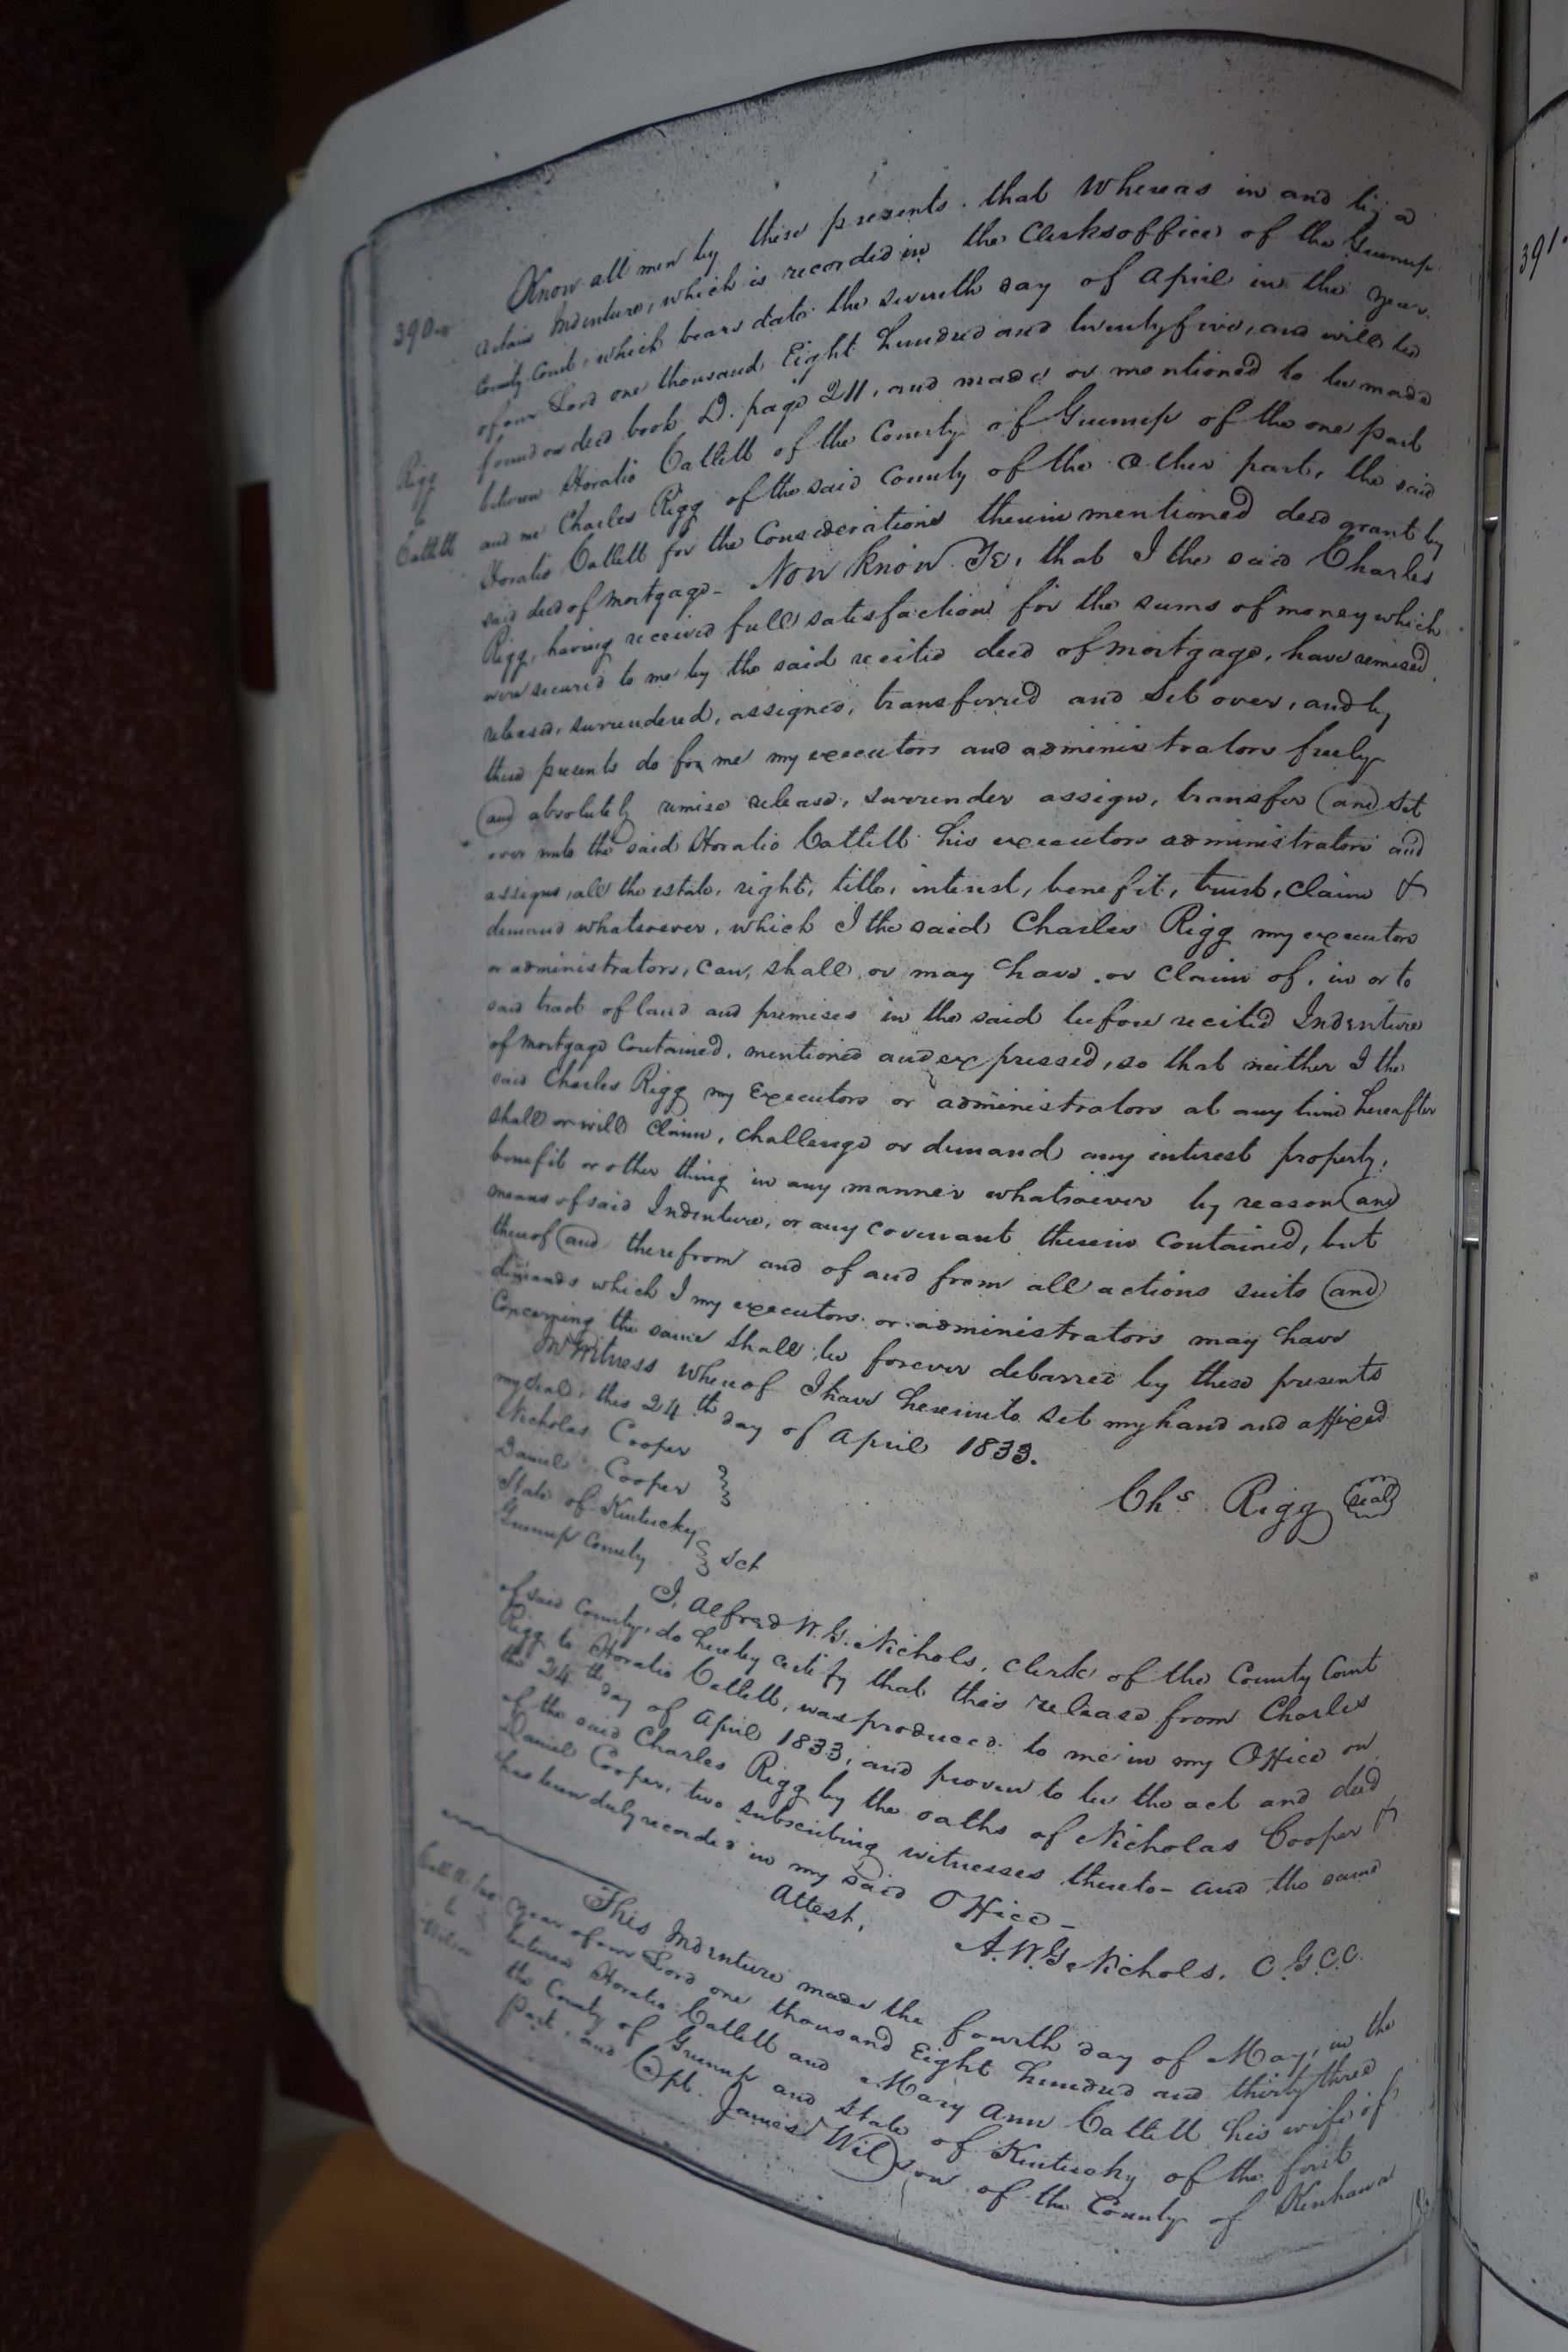 390
Know all men by these presents. that Whereas in and by a
certain Indenture, which is recorded in the Clerks office of the Greenup
County Court, which bears date the seventh day of April in the year
of our Lord one thousand Eight hundred and twenty five, and will be
found on deed book D. page 211, and made or mentioned to be made
Rigg
to
Catlett
between Horatio Catlett of the County of Greenup of the one part
and me Charles Rigg of the said County of the other part, the said
Horatio Catlett for the Considerations therein mentioned deed grant by
said deed of mortgage - Now know Ye, that I the said Charles
Rigg, having received full satisfaction for the sums of money which
were secured to me by the said recited deed of mortgage, have remised
released, surrendered, assigned, transferred and Set over, and by
these presents do for me my executors and administrators freely
and absolutely remise release, surrender assign, transfer and Set
over unto the said Horatio Catlett his executors administrators and
assigns, all the estate, right, title, interest, benefit, trust, Claim &
demand whatsoever, which I the said Charles Rigg my executors
or administrators, can, shall, or may have, or Claim of, in or to
said tract of land and premises in the said before recited Indenture
of mortgage Contained, mentioned and expressed, so that neither I the
said Charles Rigg my Executors or administrators at any time hereafter
shall or will Claim, challenge or demand any interest property,
benefit or other thing in any manner whatsoever by reason and
means of said Indenture, or any covenant therein Contained, but
thereof and therefrom and of and from all actions suits and
demands which I my executors or administrators may have
Concerning the same shall be forever debarred by these presents
In Witness Whereof I have hereunto Set my hand and affixed
my Seal, this 24th day of April 1833.
Nicholas Cooper
Daniel Cooper
Chs Rigg Seal
State of Kentucky
Greenup County Sct
I, Alfred W. G. Nichols, Clerk of the County Court
of said County, do hereby certify that this release from Charles
Rigg to Horatio Catlett, was produced to me in my Office on
the 24th day of April 1833, and proven to be the act and deed
of the said Charles Rigg by the oaths of Nicholas Cooper &
Daniel Cooper, two subscribing witnesses thereto - and the same
has been duly recorded in my said Office -
Attest,
A. W. G. Nichols, C.G.C.C.
to
Wilson
This Indenture made the fourth day of May, in the
Year of our Lord one thousand Eight hundred and thirty three
between Horatio Catlett and Mary Ann Catlett his wife of
the County of Greenup and State of Kentucky of the first
Part, and Capt. James Wilson of the County of Kenhawa
391